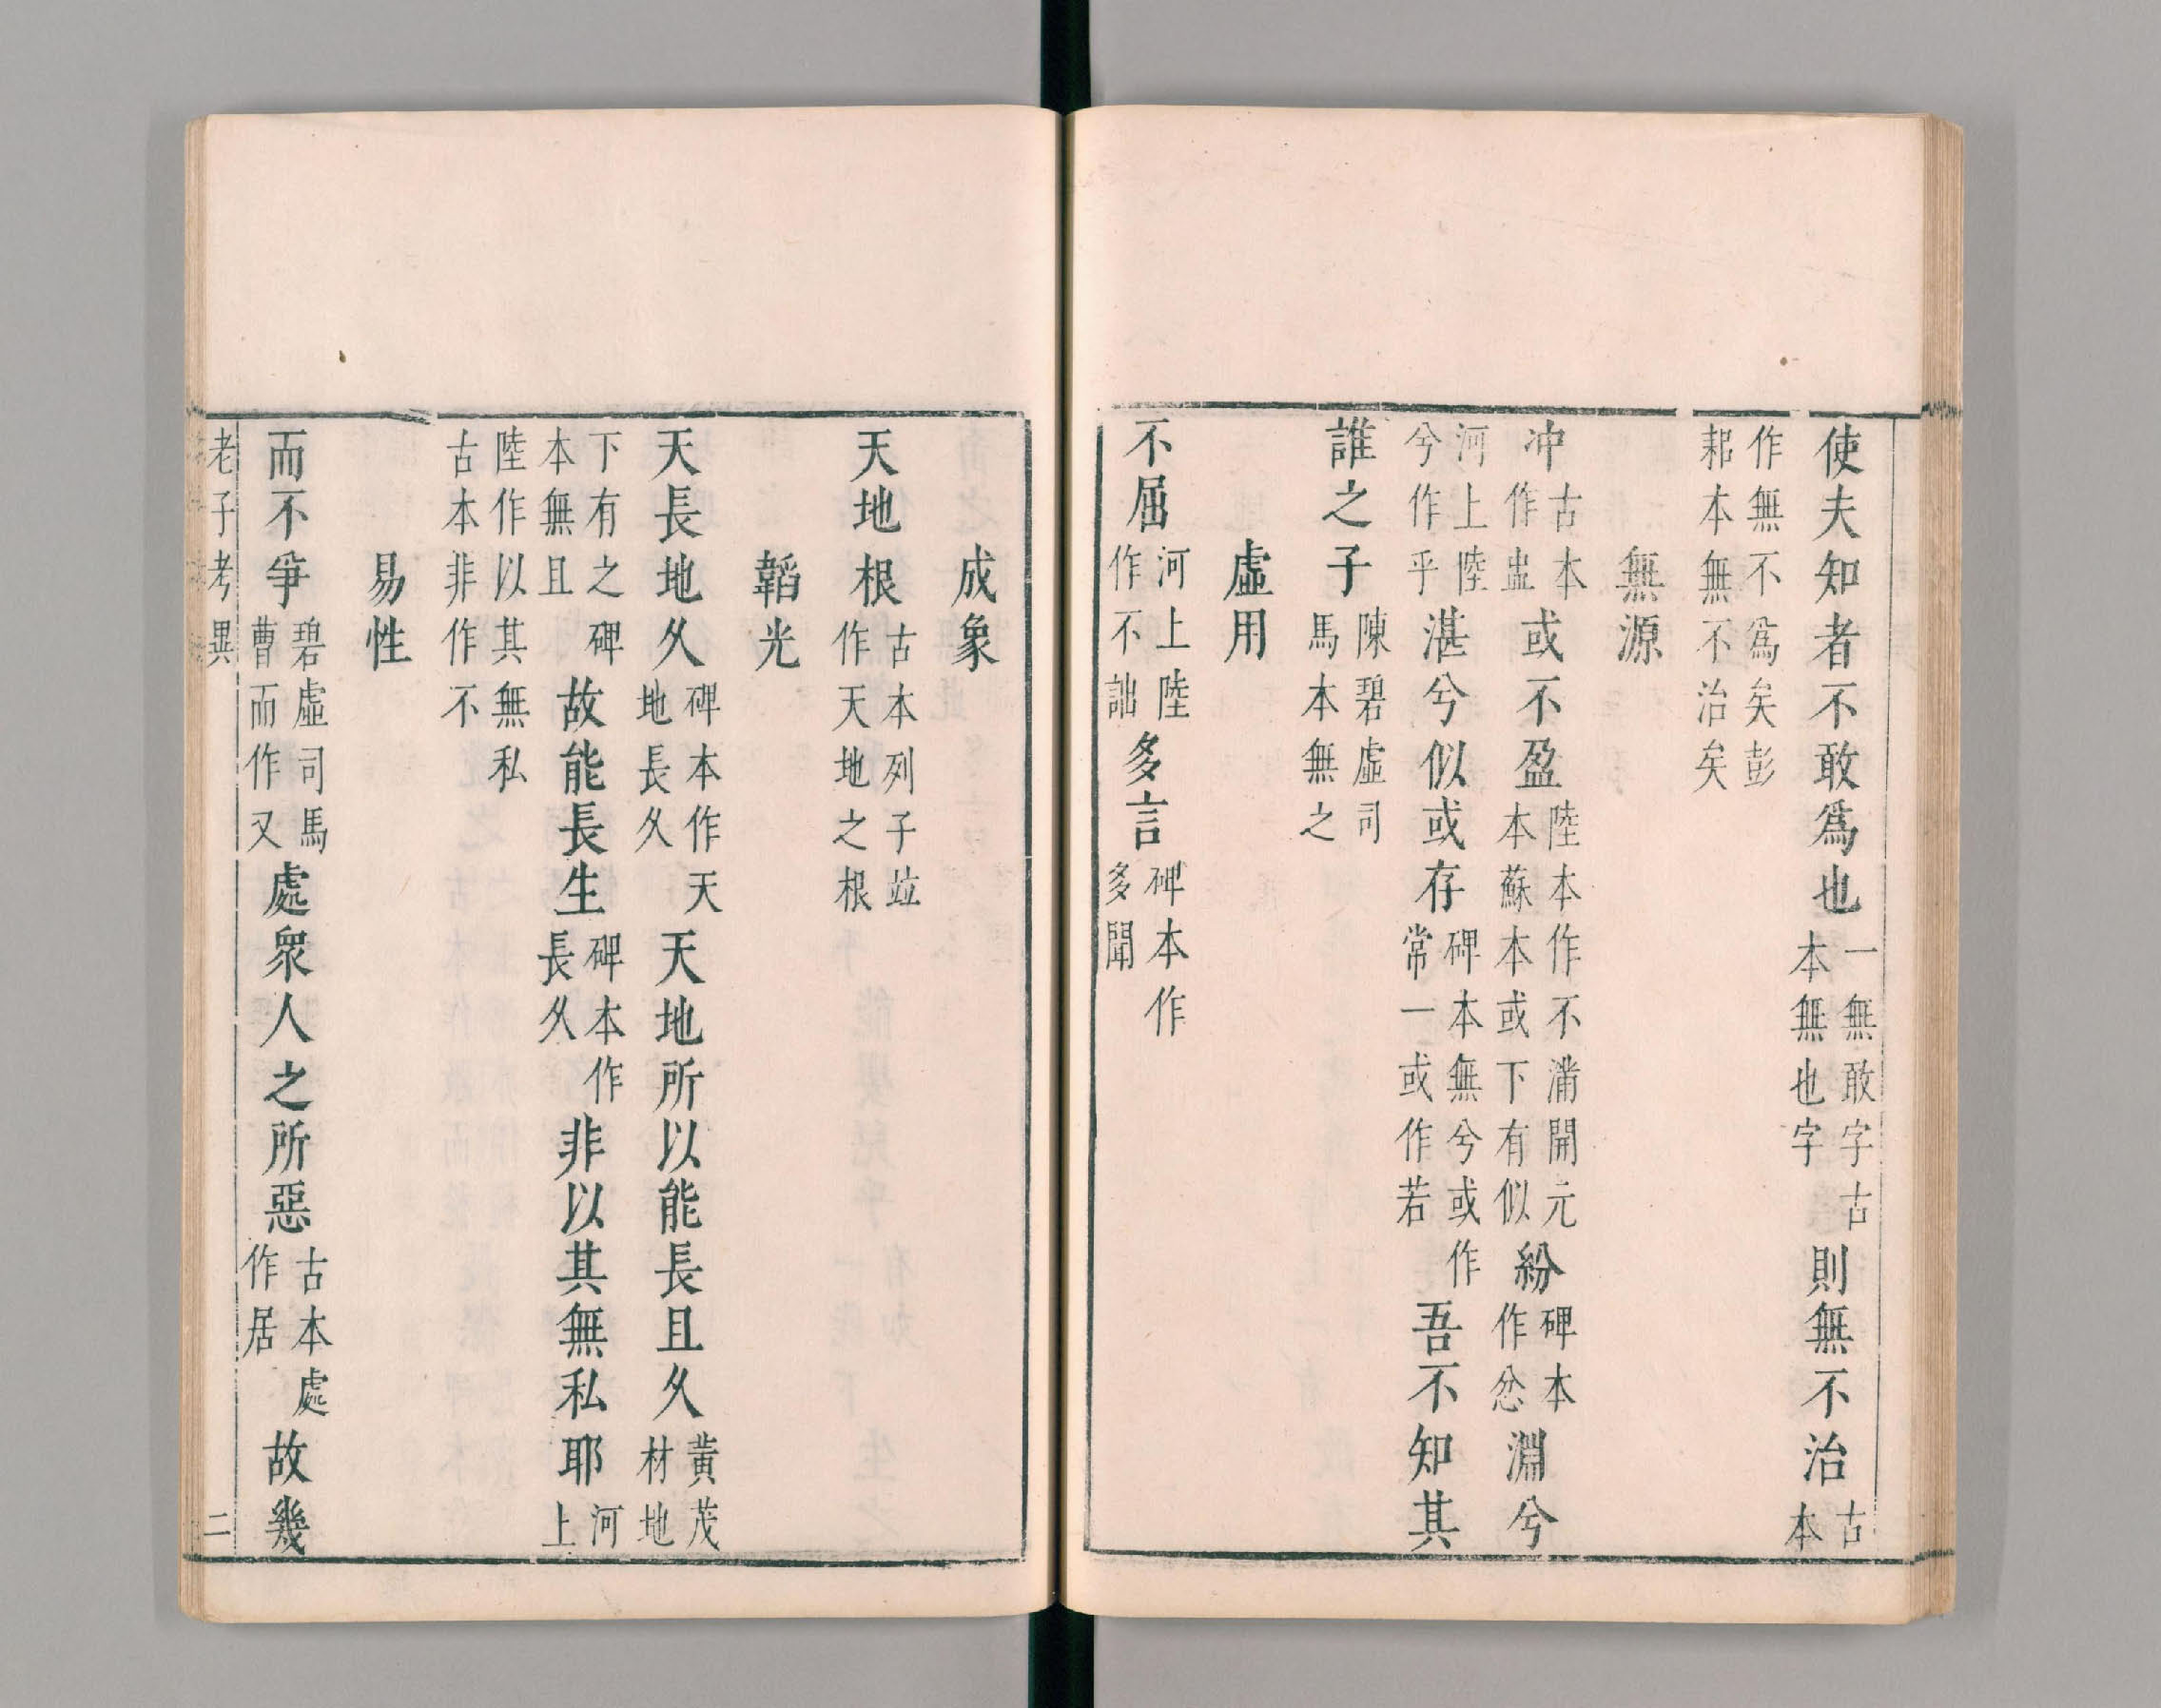 使夫知者不敢爲也一無敢字古本無也字則無不治古本
作無不爲矣彭耜本無不治矣
無源
冲古本作盅或不盈陸本作不滿開元本蘇本或下有似紛碑本作忿淵兮
河上陸兮作乎湛兮似或存碑本無兮或作常一或作若吾不知其
誰之子陳碧虛司馬本無之
虛用
不屈河上陸作不詘多言碑本作多聞
成象
天地根古本列子竝作天地之根
韜光
天長地久碑本作天地長久天地所以能長且久黃茂材地
下有之碑本無且故能長生碑本作長久非以其無私耶河上
陸作以其無私古本非作不
易性
而不爭碧虛司馬曹而作又處衆人之所惡古本處作居故幾
老子考異 二